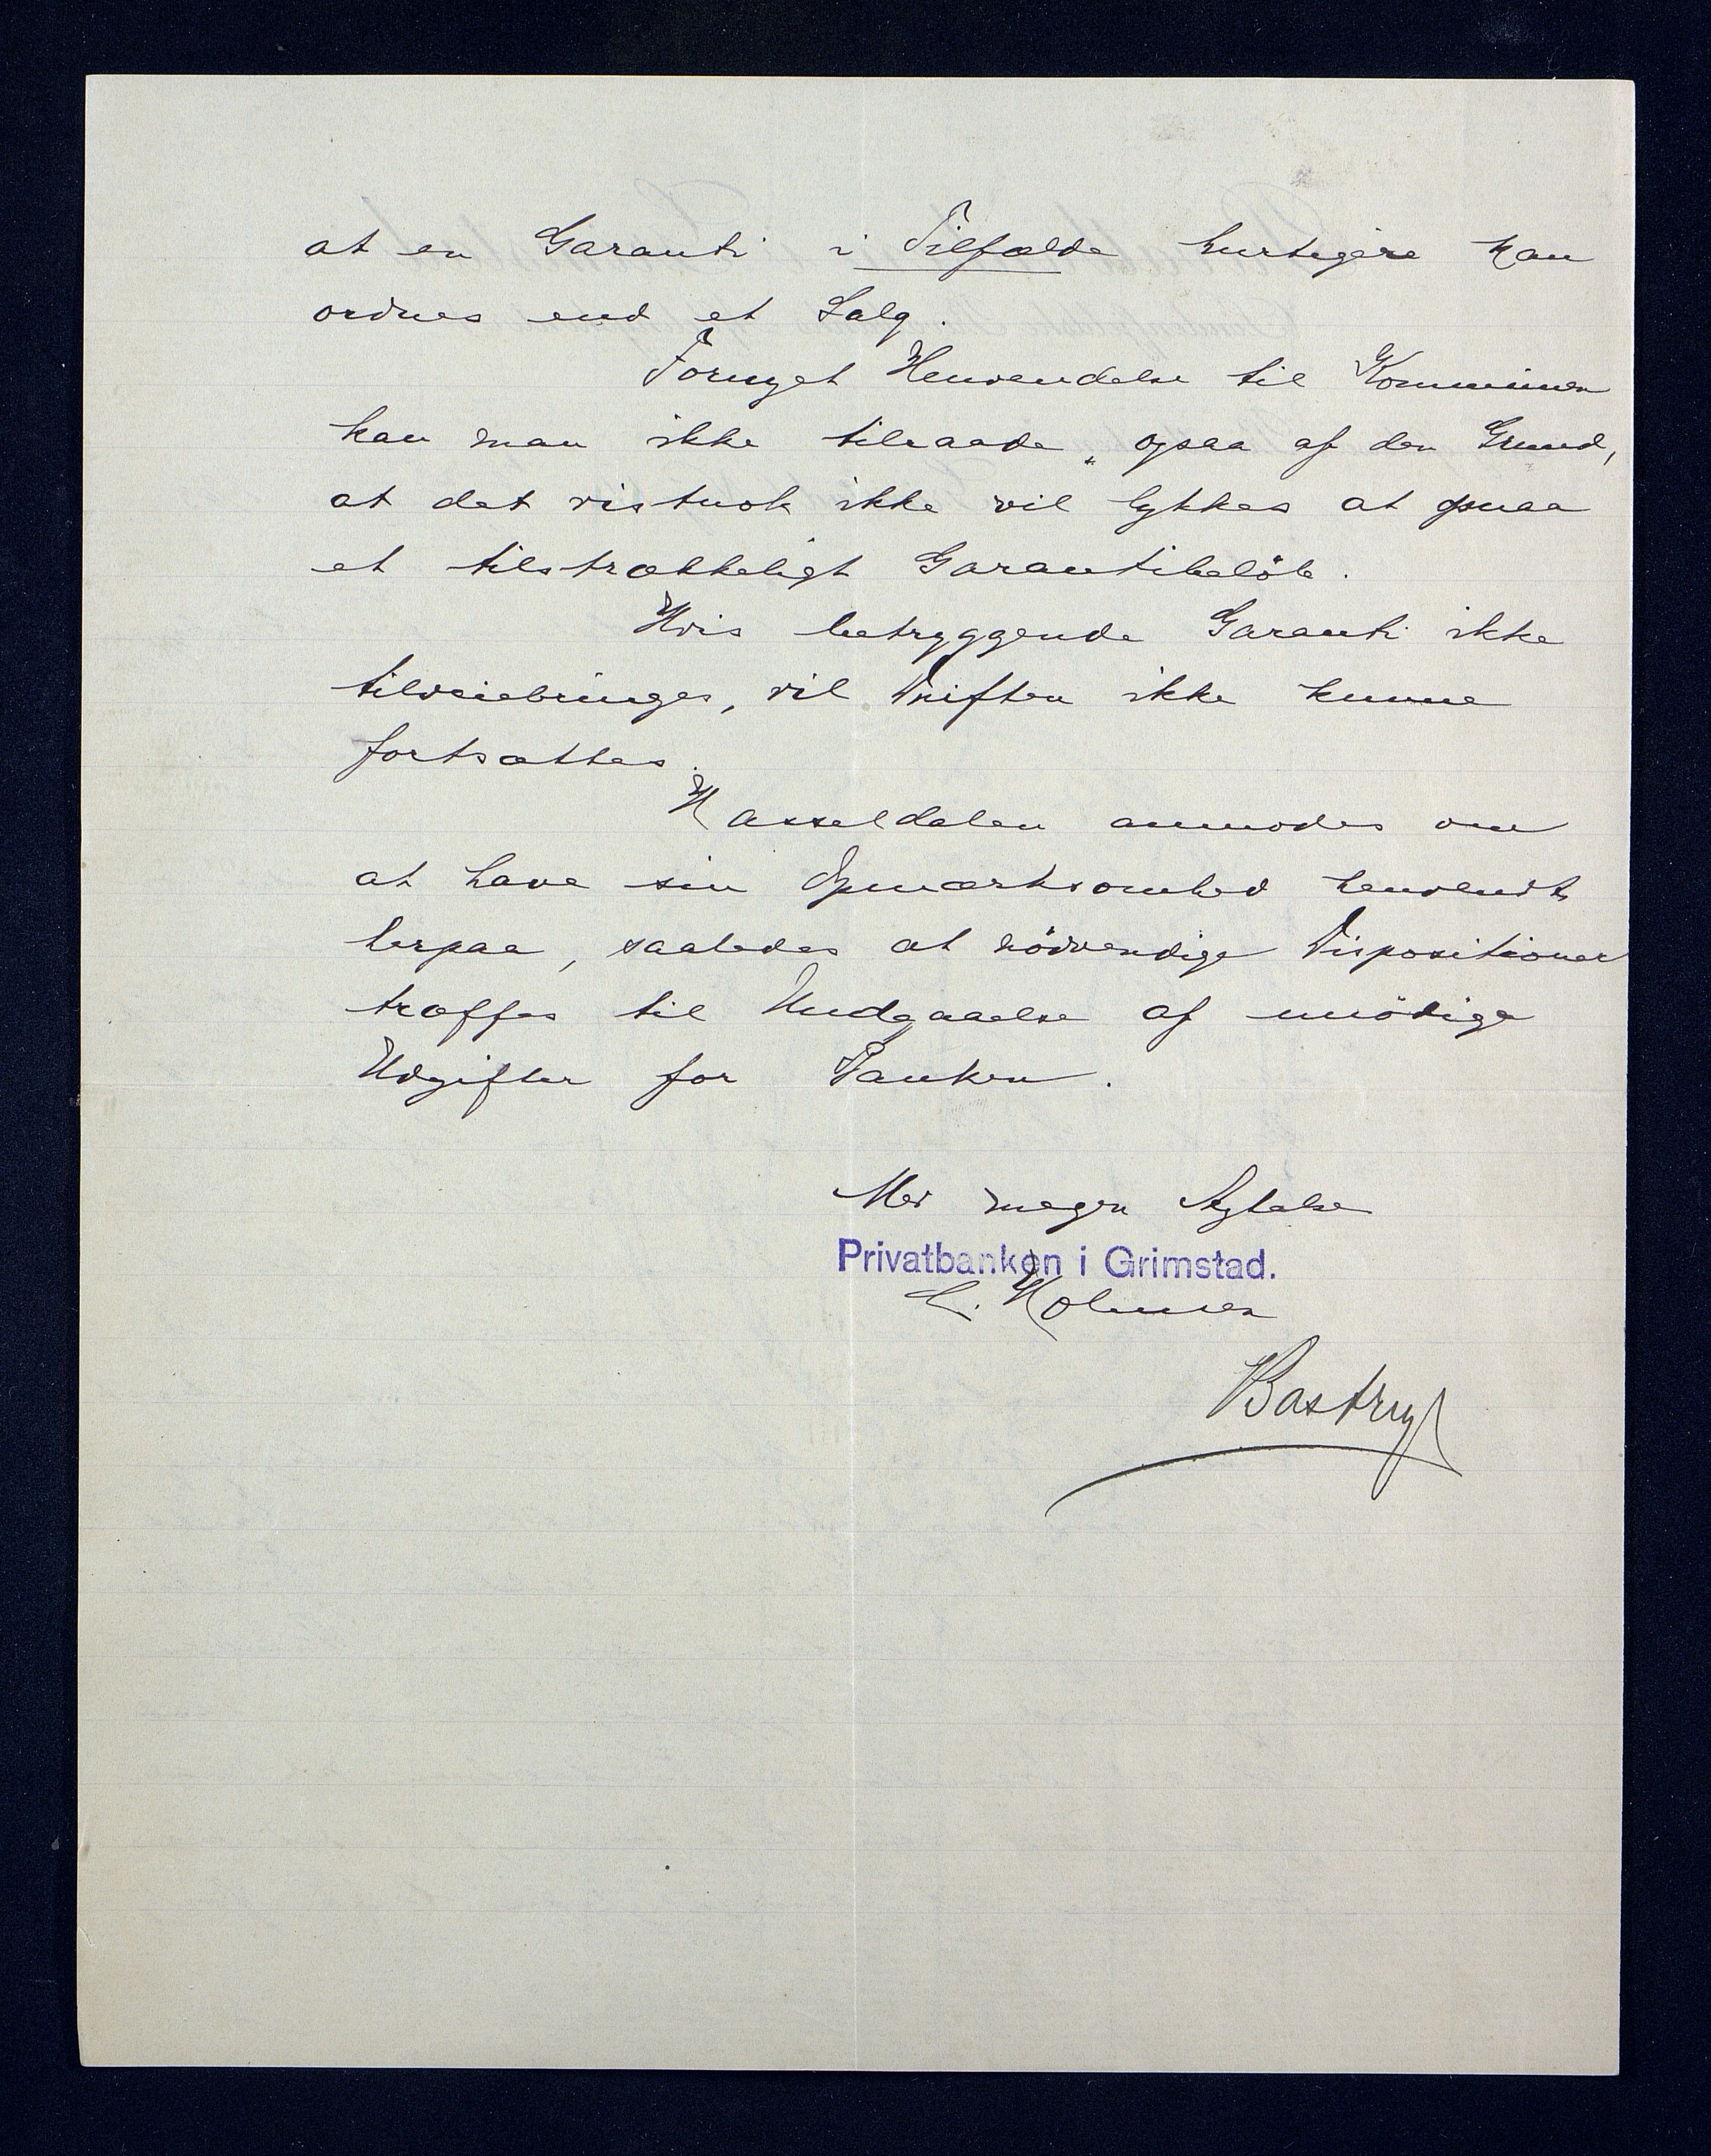 at en Garanti i Tilfælde hurtigere kan
ordnes end et Salg.
Fornyet Henvendelse til Kommunen
kan man ikke tilraade, ogsaa af den Grund,
at det vistnok ikke vil lykkes at opnaa
et tilstrækkeligt Garantibelöb.
Hvis betryggende Garanti ikke
tilveiebringes, vil Driften ikke kunne
fortsættes.
Hasseldalen anmodes om
at have sin Opmærksomhed henvendt
herpaa, saaledes at nödvendige Dispositioner
træffes til Undgaaelse af unödige
Udgifter for Banken.
Med megen Agtelse
Privatbanken i Grimstad.
Holmsen